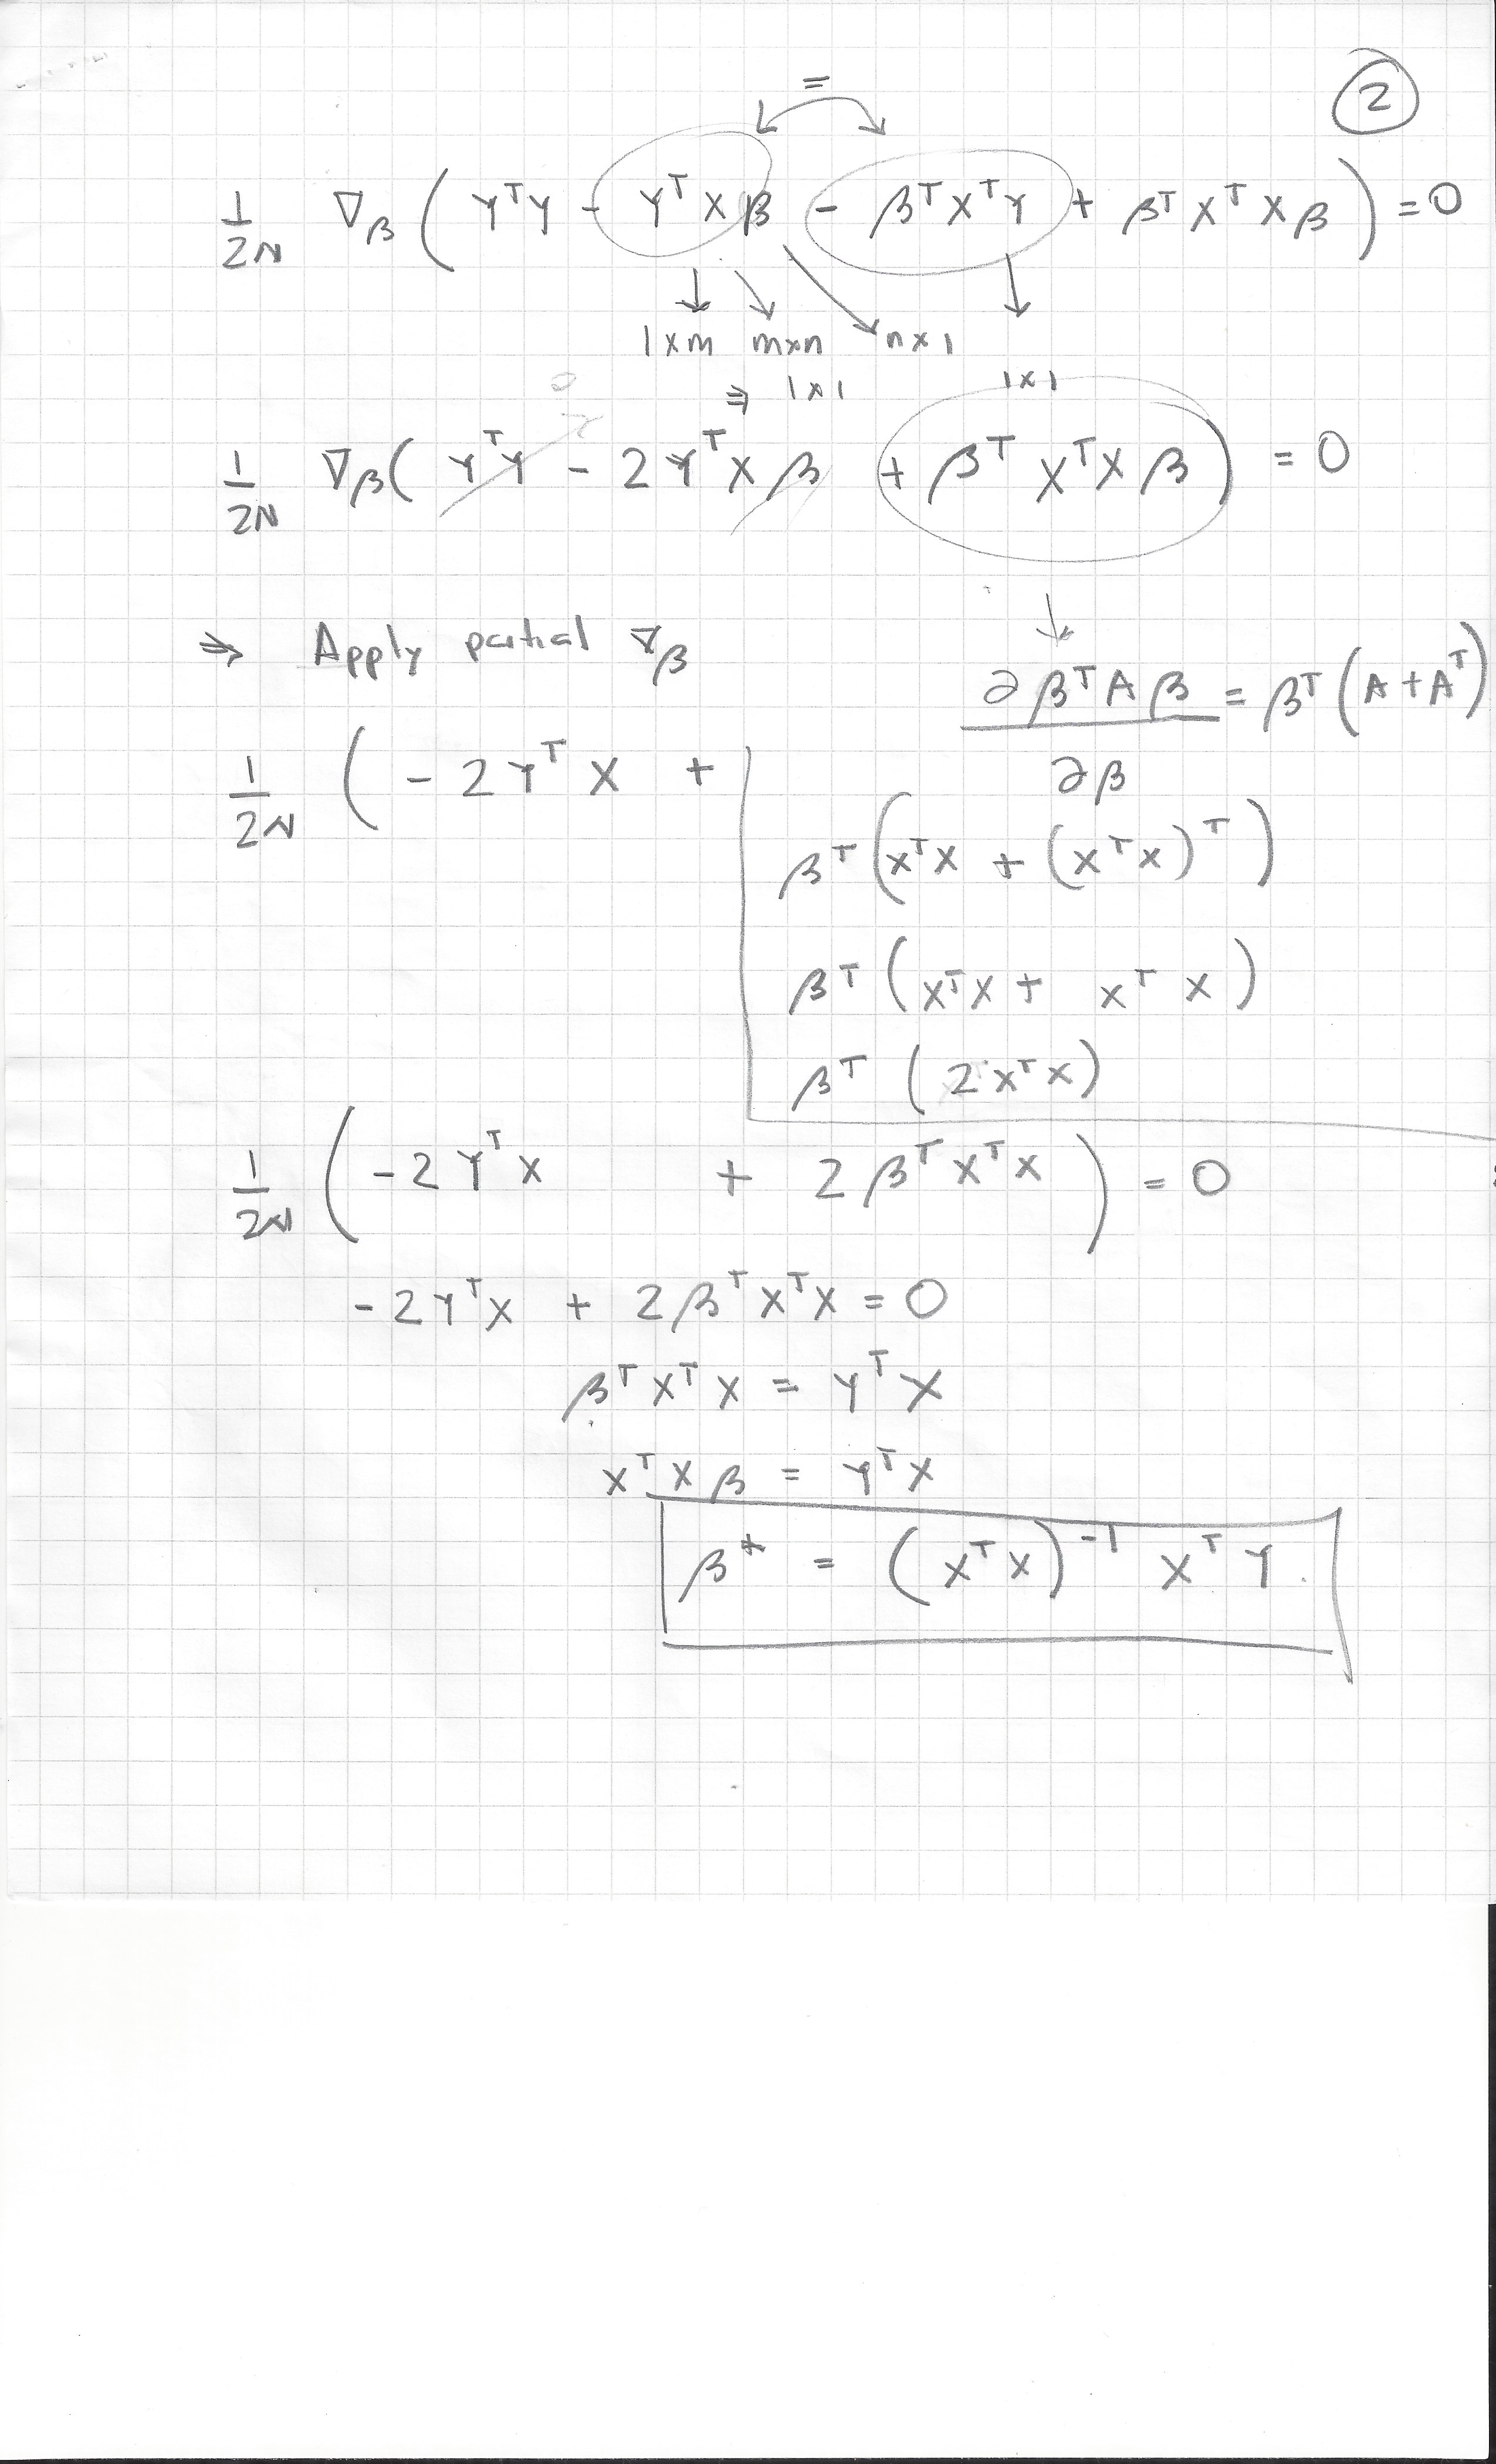 =
2
1/2N ∇β ( Yᵀy - yᵀxβ - βᵀXᵀY + βᵀXᵀXβ ) = 0
1xm mxn nx1
⇒ 1x1 1x1
0
1/2N ∇β ( YᵀY - 2Yᵀxβ + βᵀXᵀXβ ) = 0
⇒ Apply partial ∇β
∂βᵀAβ/∂β = βᵀ(A + Aᵀ)
1/2N ( -2Yᵀx +
βᵀ(xᵀx + (xᵀx)ᵀ)
βᵀ(xᵀx + xᵀx)
βᵀ(2xᵀx)
1/2N ( -2Yᵀx + 2βᵀxᵀx ) = 0
-2Yᵀx + 2βᵀxᵀx = 0
βᵀxᵀx = yᵀX
xᵀxβ = yᵀx
β* = (xᵀx)⁻¹ xᵀY.